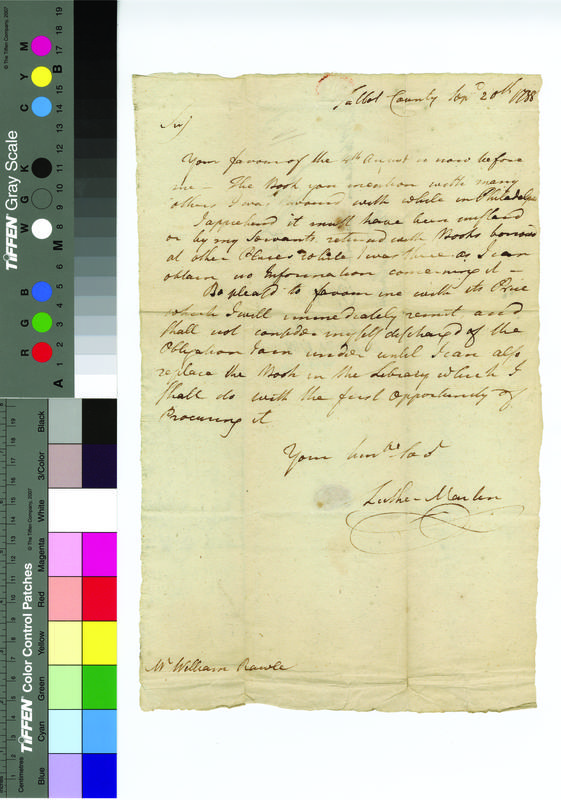 Talbot County Sepr. 20th 1788
Sir
Your favour of the 4th August is now before
me – The Book you mention with many
others I was favoured with while in Philadelphia
I apprehend it must have been mislaid
or by my Servants returned with Books borrowed
at other Places while I was there as I can
obtain no Information concerning it –
Be pleas'd to favour me with its Price
which I will immediately remit and
shall not consider myself discharged of the
Obligation I am under until I can also
replace the Book in the Library which I
shall do with the first Opportunity of
Procuring it
Your
Luther Martin
Mr. William Rawle
TIFFEN Gray Scale
© The Tiffen Company, 2007
R G B
W G K
C Y M
A 1 2 3 4 5 6 M 8 9 10 11 12 13 14 15 B 17 18 19
TIFFEN Color Control Patches
© The Tiffen Company, 2007
Centimetres
Blue
Cyan
Green
Yellow
Red
Magenta
White
3/Color
Black